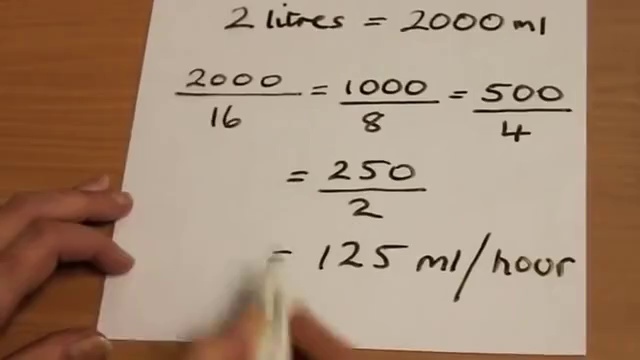 2 litres = 2000 ml
2000/16 = 1000/8 = 500/4
= 250/2
= 125 ml/hour